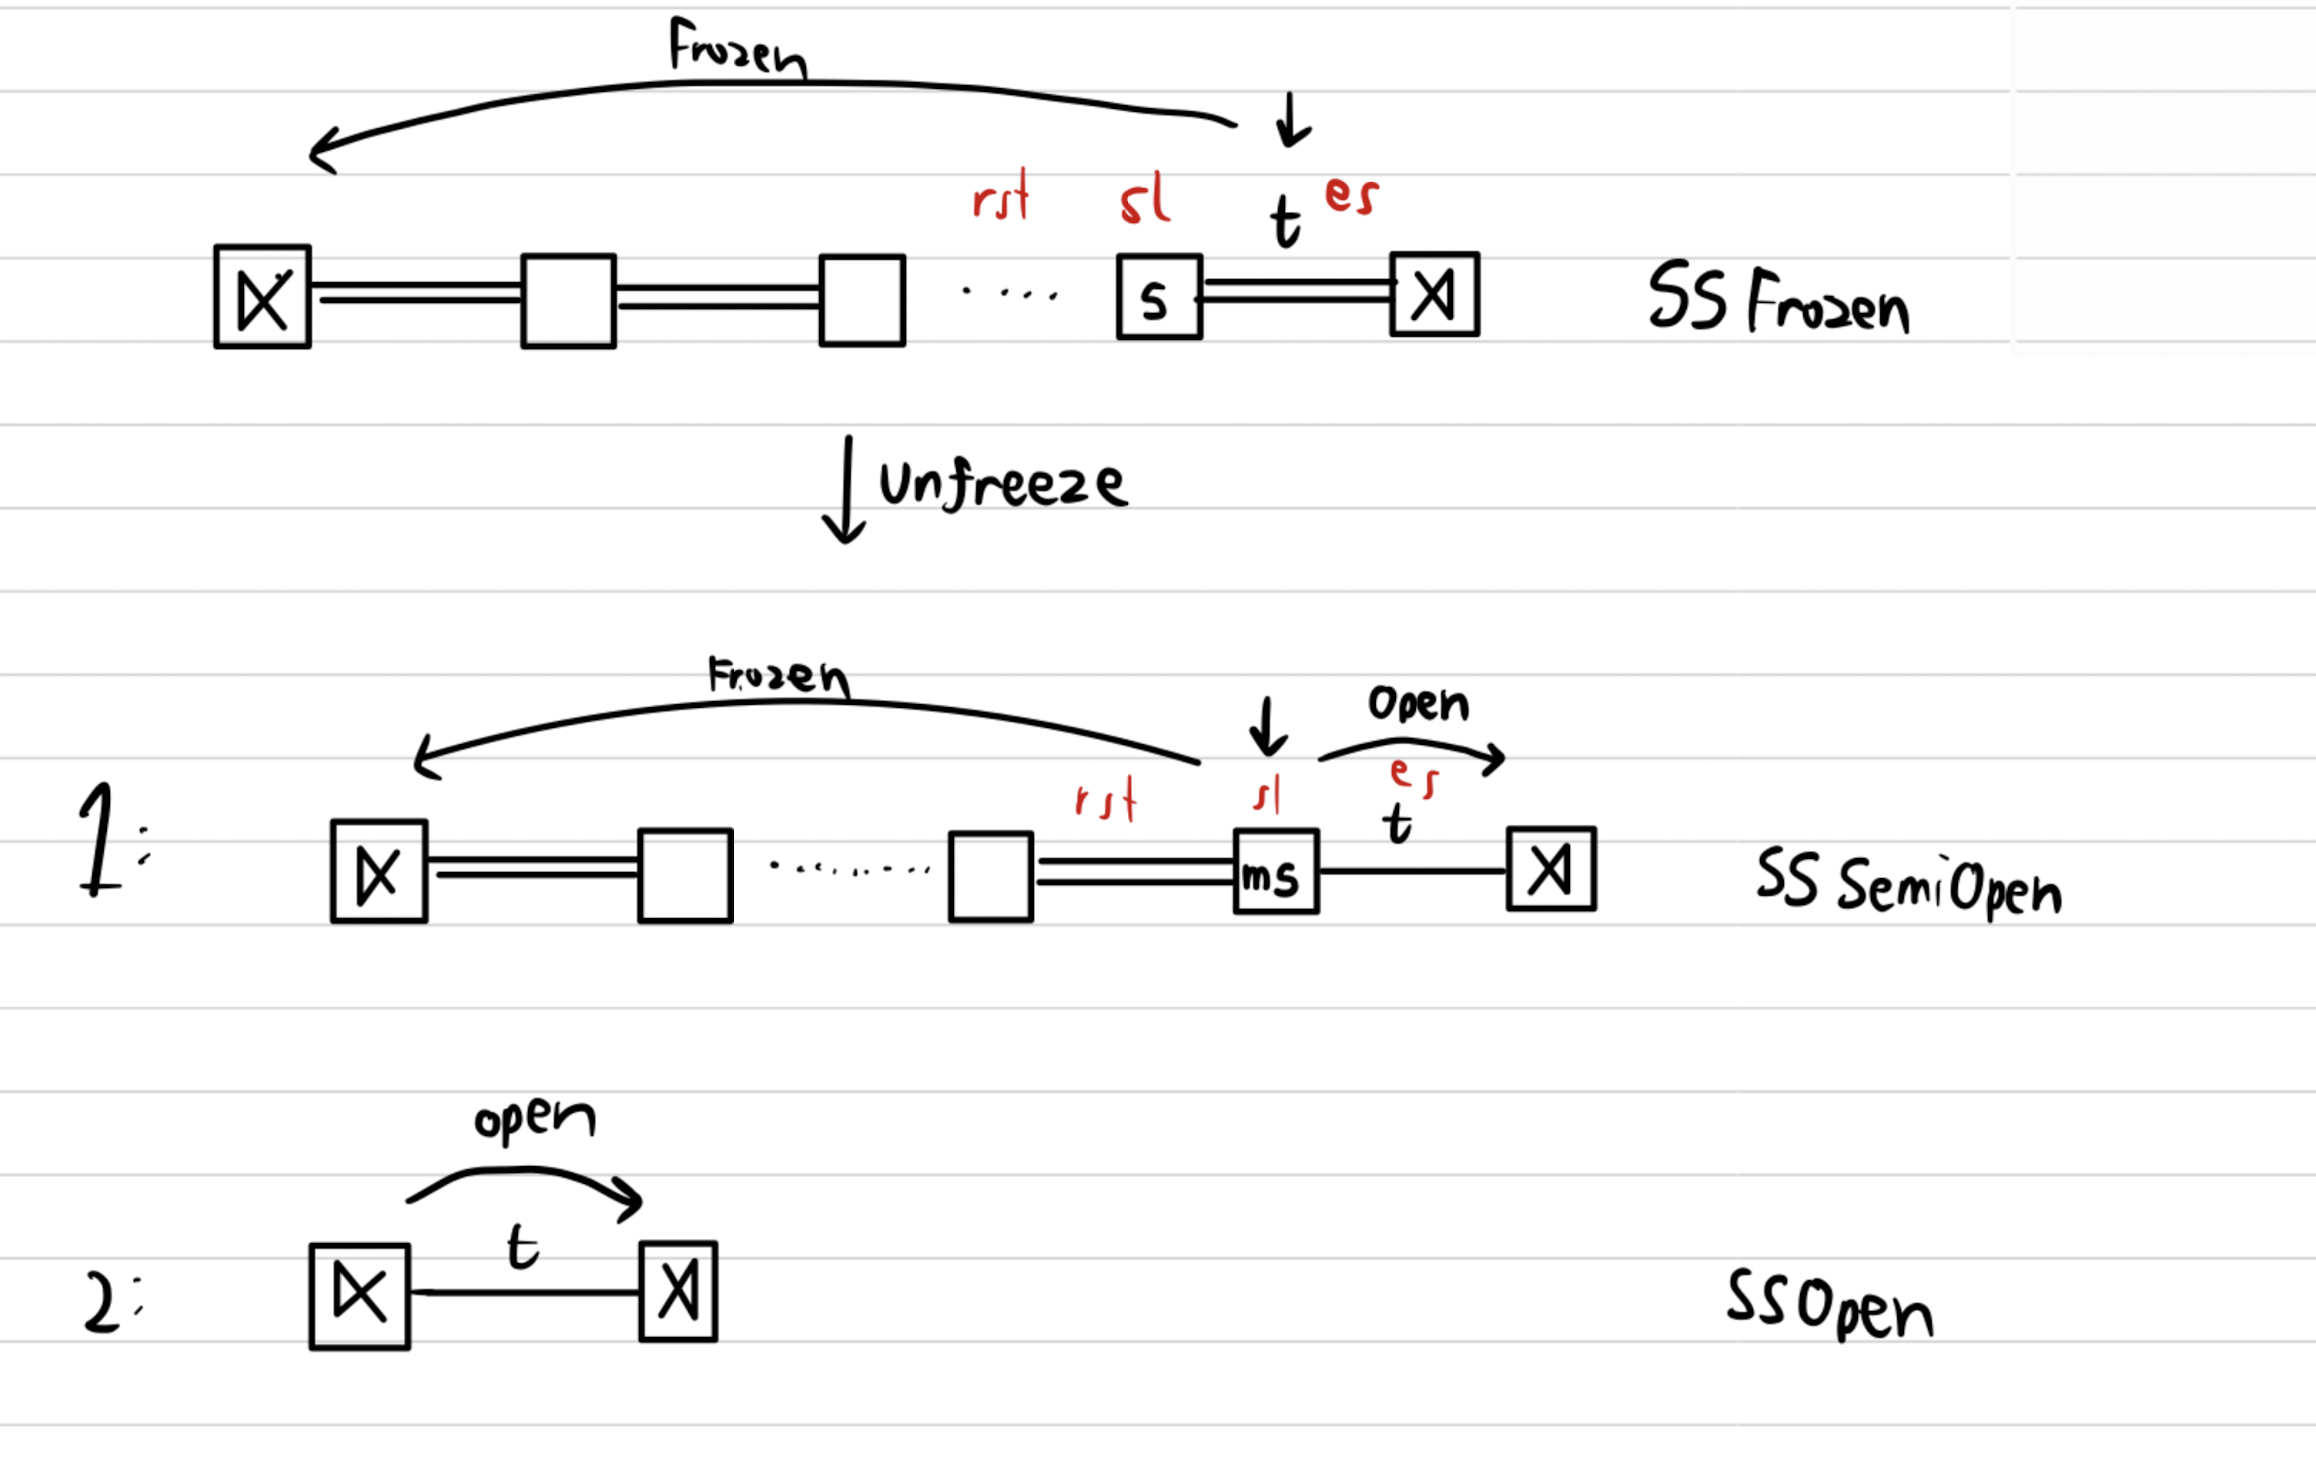 Frozen
rst sl t es
⋉ .... s ⋊ SS Frozen
Unfreeze
Frozen
Open
rst sl es
t
1: ⋉ ......... ms ⋊ SS SemiOpen
open
t
2: ⋉ ⋊ SSOpen